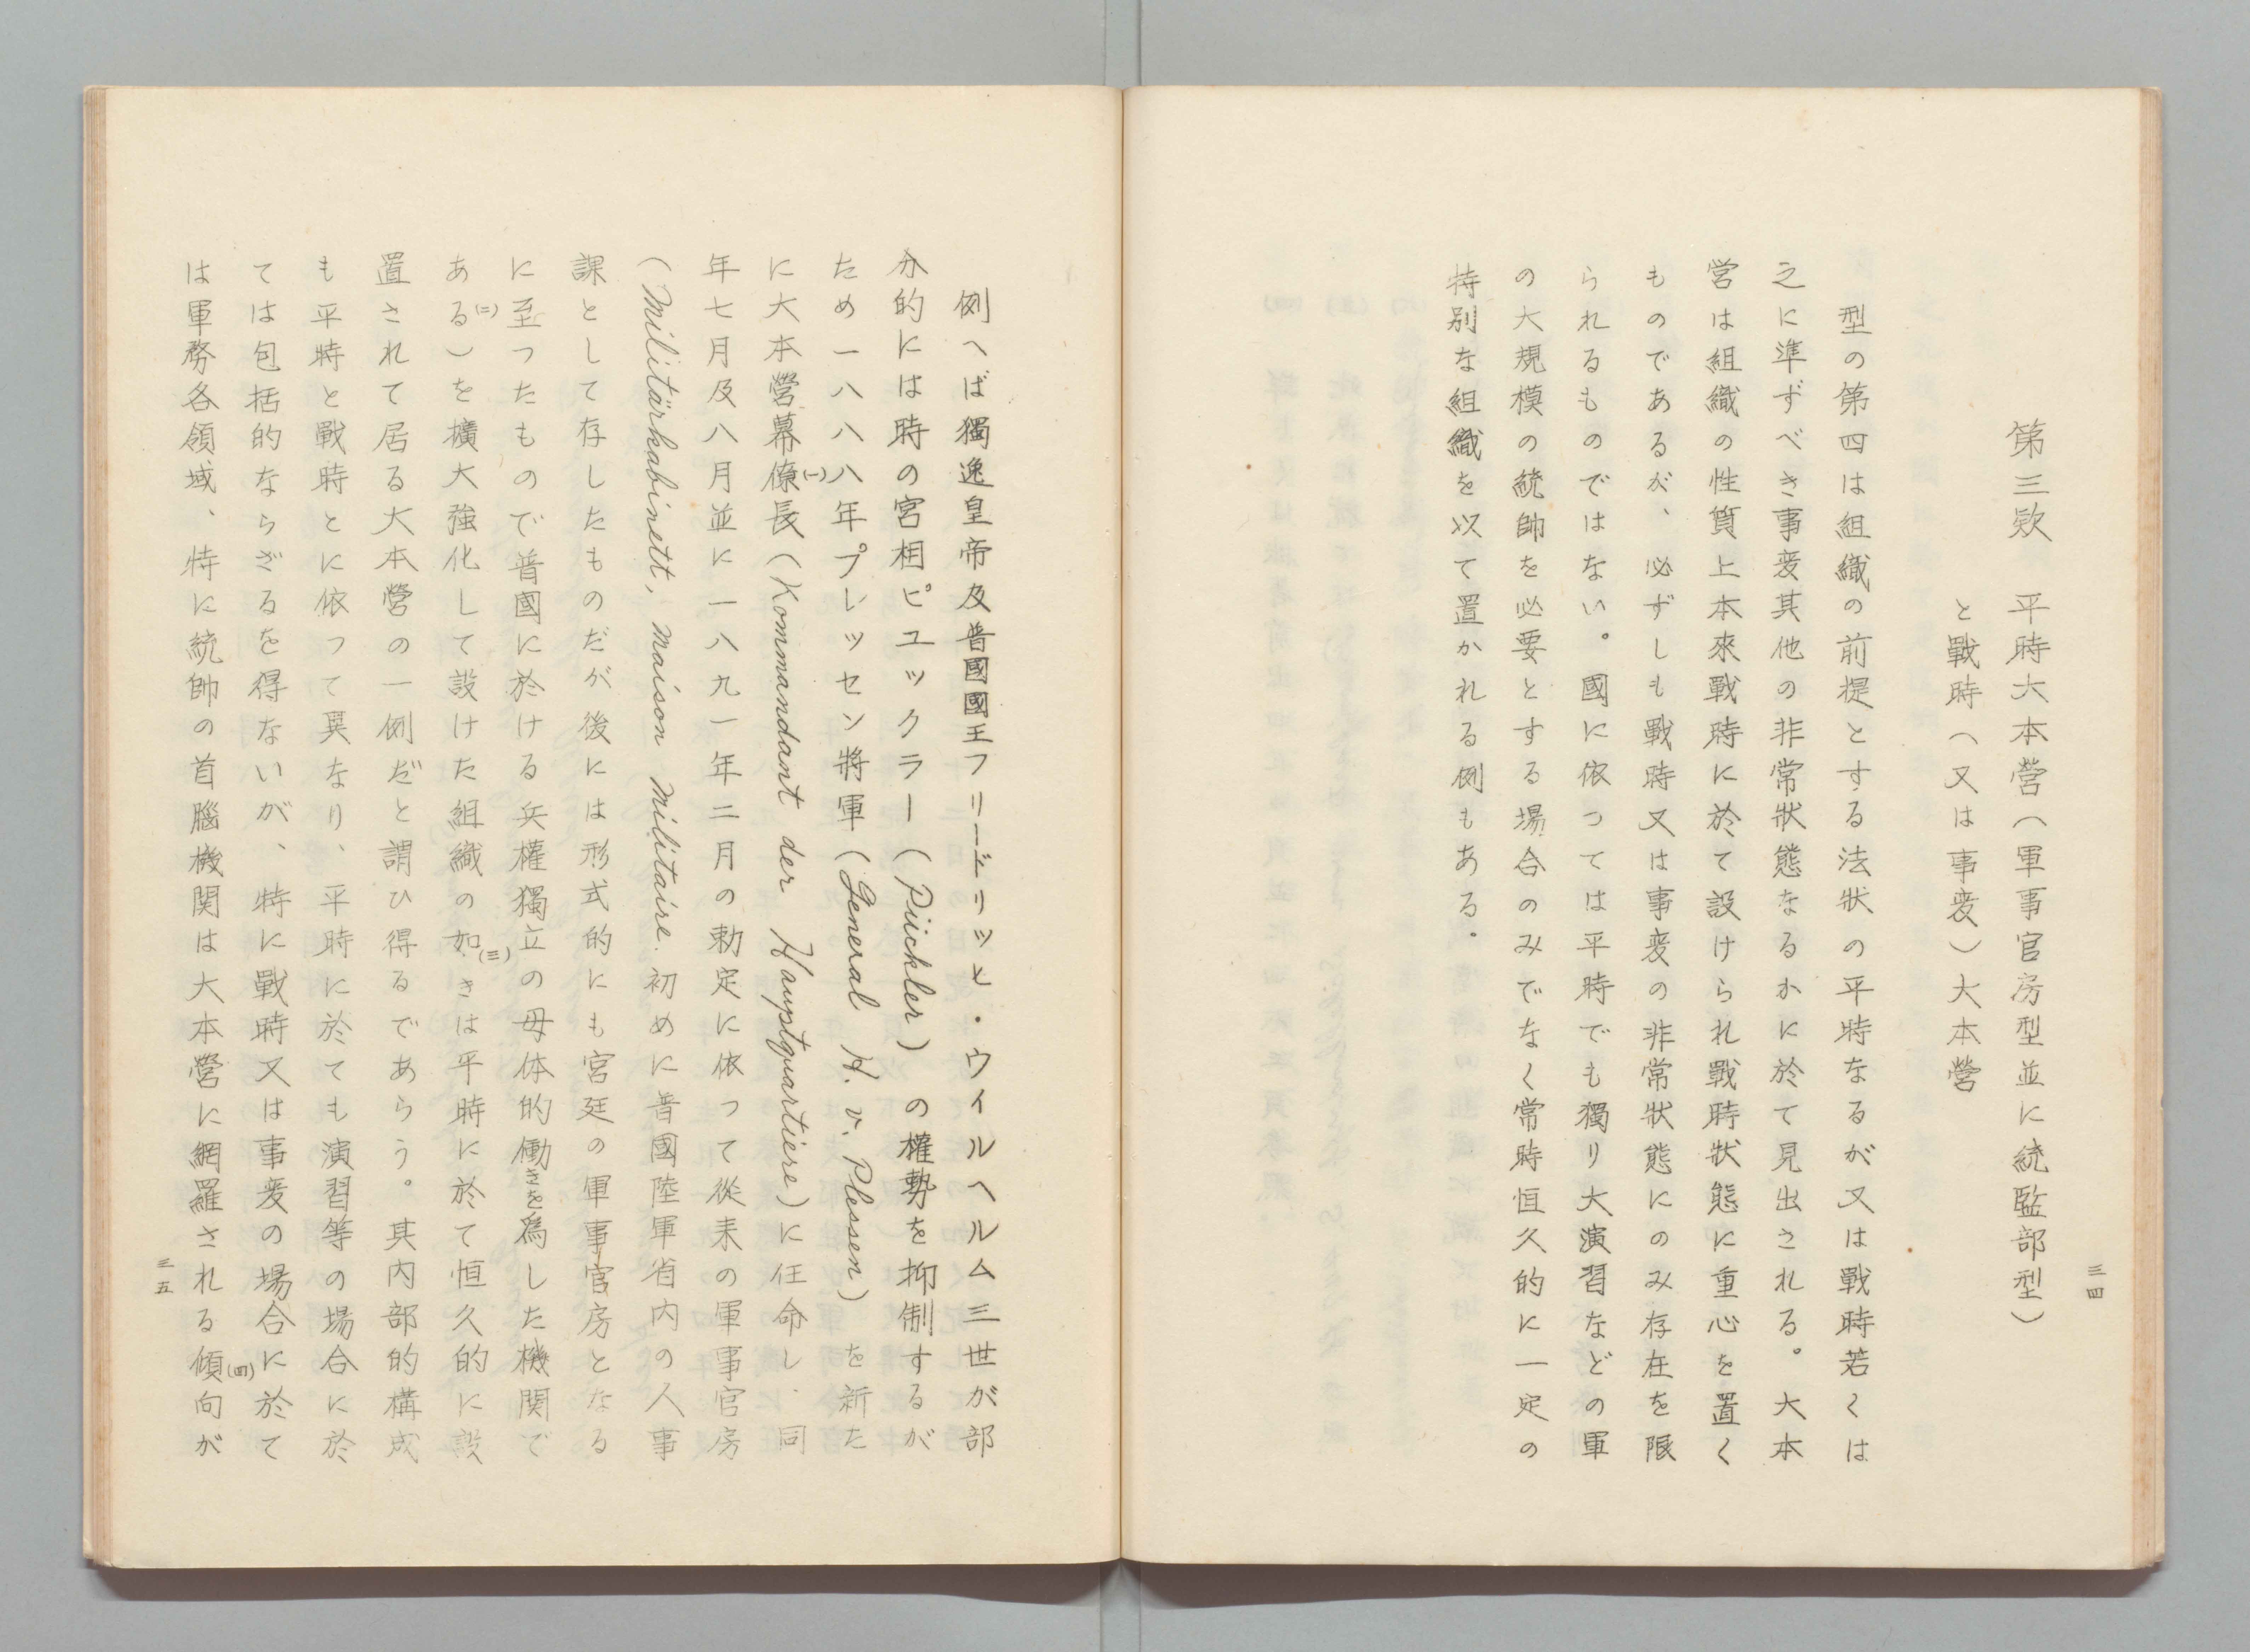 三四
第三欵　平時大本営（軍事官房型並に統監部型）
と戰時（又は事変）大本營
型の第四は組織の前提とする法狀の平時なるが又は戰時若くは
之に準ずべき事変其他の非常狀態なるかに於て見出される。大本
営は組織の性質上本來戰時に於て設けられ戰時狀態に重心を置く
ものであるが、必ずしも戰時又は事変の非常狀態にのみ存在を限
られるものではない。國に依つては平時でも獨り大演習などの軍
の大規模の統帥を必要とする場合のみでなく常時恒久的に一定の
特別な組織を以て置かれる例もある。
例へば獨逸皇帝及普國國王フリードリッヒ・ウィルヘルム三世が部
分的には時の宮相ピユックラー（Pückler）の權勢を抑制するが
ため一八八八年プレッセン將軍（General H. v. Plessen）を新た
に大本營幕僚長(一)（Kommandant der Hauptquartiere）に任命し．同
年七月及八月並に一八九一年二月の勅定に依つて從来の軍事官房
（Militärkabinett, maison militaire. 初めに普國陸軍省内の人事
課として存したものだが後には形式的にも宮廷の軍事官房となる
に至つたもので普國に於ける兵權獨立の母体的働きを爲した機関で
ある(二)）を擴大強化して設けた組織の如き(三)は平時に於て恒久的に設
置されて居る大本營の一例だと謂ひ得るであらう。其内部的構成
も平時と戰時とに依つて異なり、平時に於ても演習等の場合に於
ては包括的ならざるを得ないが、特に戰時又は事変の場合に於て
は軍務各領域、特に統帥の首腦機関は大本營に網羅される傾向(四)が
三五